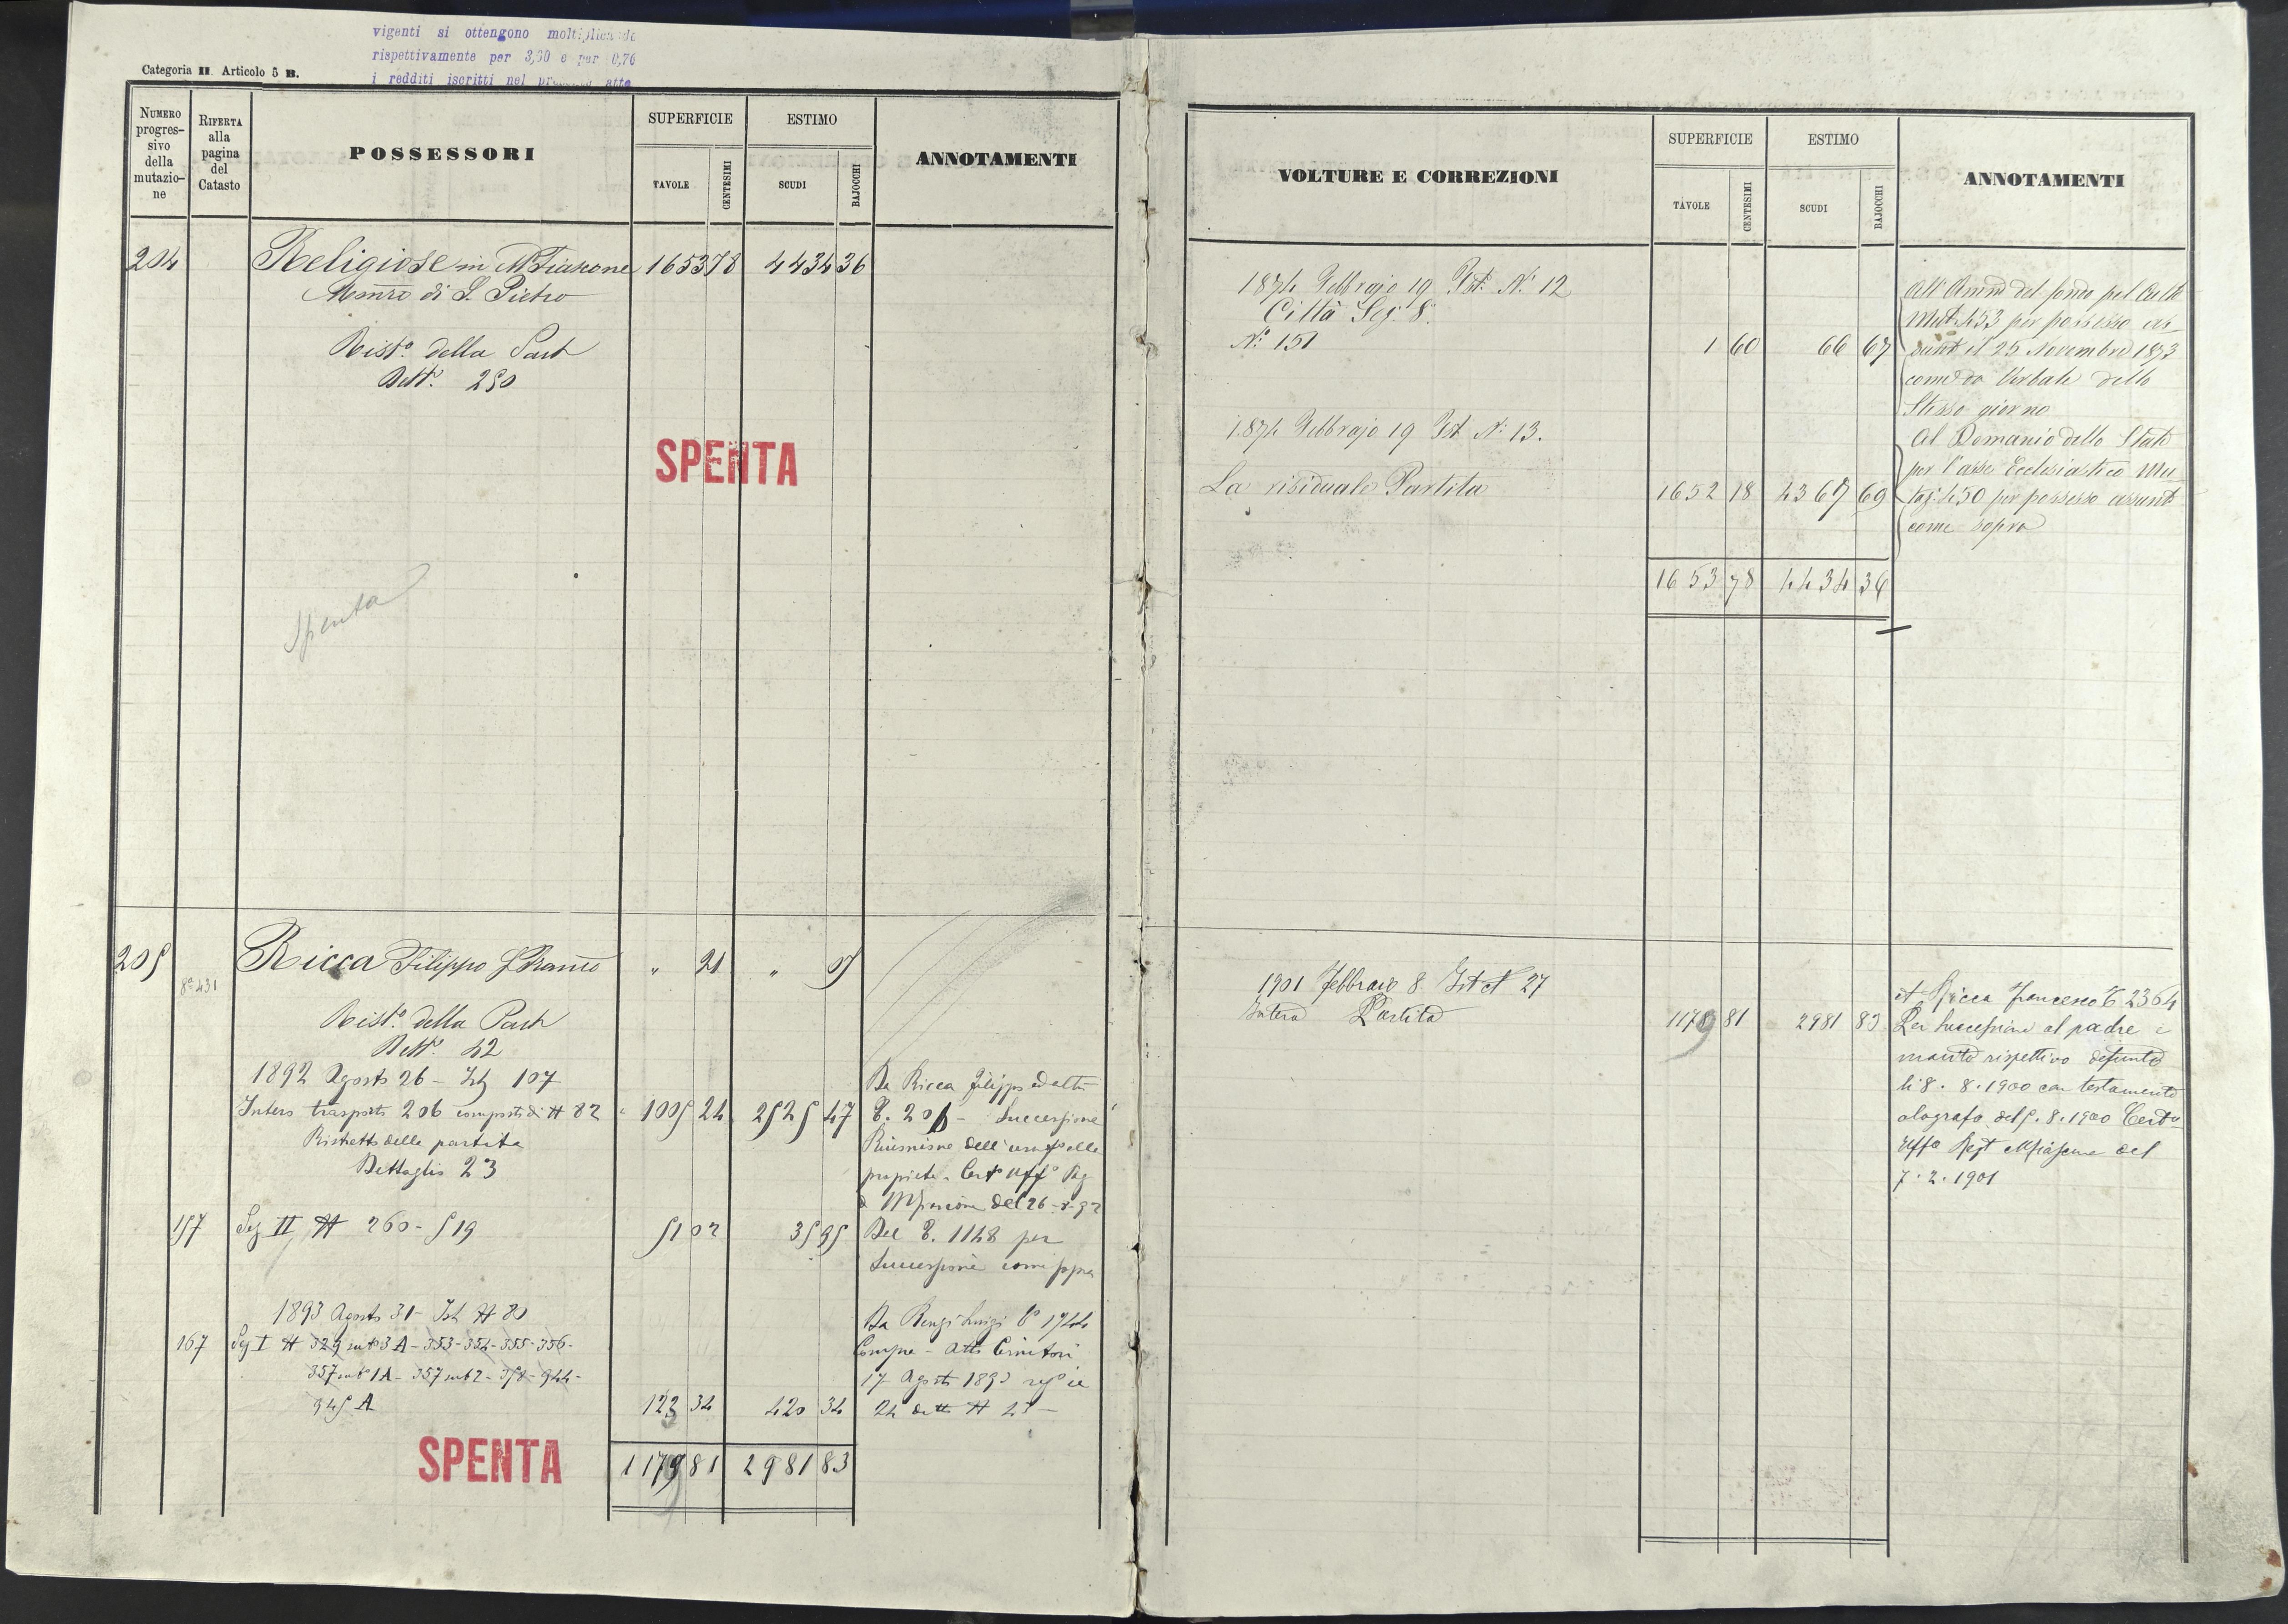 vigenti si ottengono moltiplicando
rispettivamente per 3,60 e per 0,76
i redditi iscritti nel
Categoria II Articolo 5 B.
NUMERO progressivo della mutazione
RIFERTA alla pagina del Catasto
POSSESSORI
SUPERFICIE
TAVOLE
CENTESIMI
ESTIMO
SCUDI
BAJOCCHI
ANNOTAMENTI
204 Religiose in Mfiascone 1653 78 4434 36
di S. Pietro
Rist.o della Part
Dett. 250
SPENTA
Spenta
205 Ricca Filippo 21
8a 431
Rist.o della Part
Dett. 42
1892 Agosto 26 - Ist 107
Intero trasporto 206 composti di N 82 1005 24 2525 47
Ristretto della partita
Dettaglio 23
Da Ricca Filippo ed altri
- Successione
Riunione dell'
proprietà
del 26-8-92
157 Sez II N 260 - 519 51 02 35 95
Del 1148 per
Successione come sopra
1893 Agosto 31 - Ist N 80
167 Sez I N 329 sub 3 A - 353 - 354 - 355 - 356 -
357 sub 1 A - 357 sub 2 - 358 - 944 -
945 A 123 34 420 34
Da Luigi 1744
Compra - Atto
17 Agosto 1893
24 detto N
SPENTA
1179 81 2981 83
VOLTURE E CORREZIONI
SUPERFICIE
TAVOLE
CENTESIMI
ESTIMO
SCUDI
BAJOCCHI
ANNOTAMENTI
1874 Febbrajo 19 Ist. N. 12
Città Sez. 8.
N. 151 1 60 66 67
All' Ammne del fondo pel Culto
Mut. 453 per possesso as-
sunto il 25 Novembre 1873
come da Verbale dello
Stesso giorno
1874 Febbrajo 19 Ist N. 13.
La residuale Partita 1652 18 4367 69
Al Demanio dello Stato
per l'asse Ecclesiastico Mu
taz. 450 per possesso assunto
come sopra
1653 78 4434 36
1901 Febbraio 8 Ist N 27
Intera Partita 1179 81 2981 83
A Ricca Francesco 2364
Per Successione al padre e
marito rispettivo defunto
li 8. 8. 1900 con testamento
olografo del 5. 8. 1900 Certo
Uffo del
7. 2. 1901